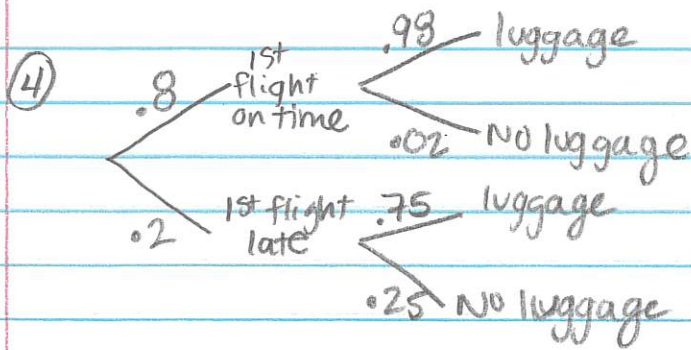 ④
.8
1st
flight
on time
.98
luggage
.02
No luggage
.2
1st flight
late
.75
luggage
.25
No luggage